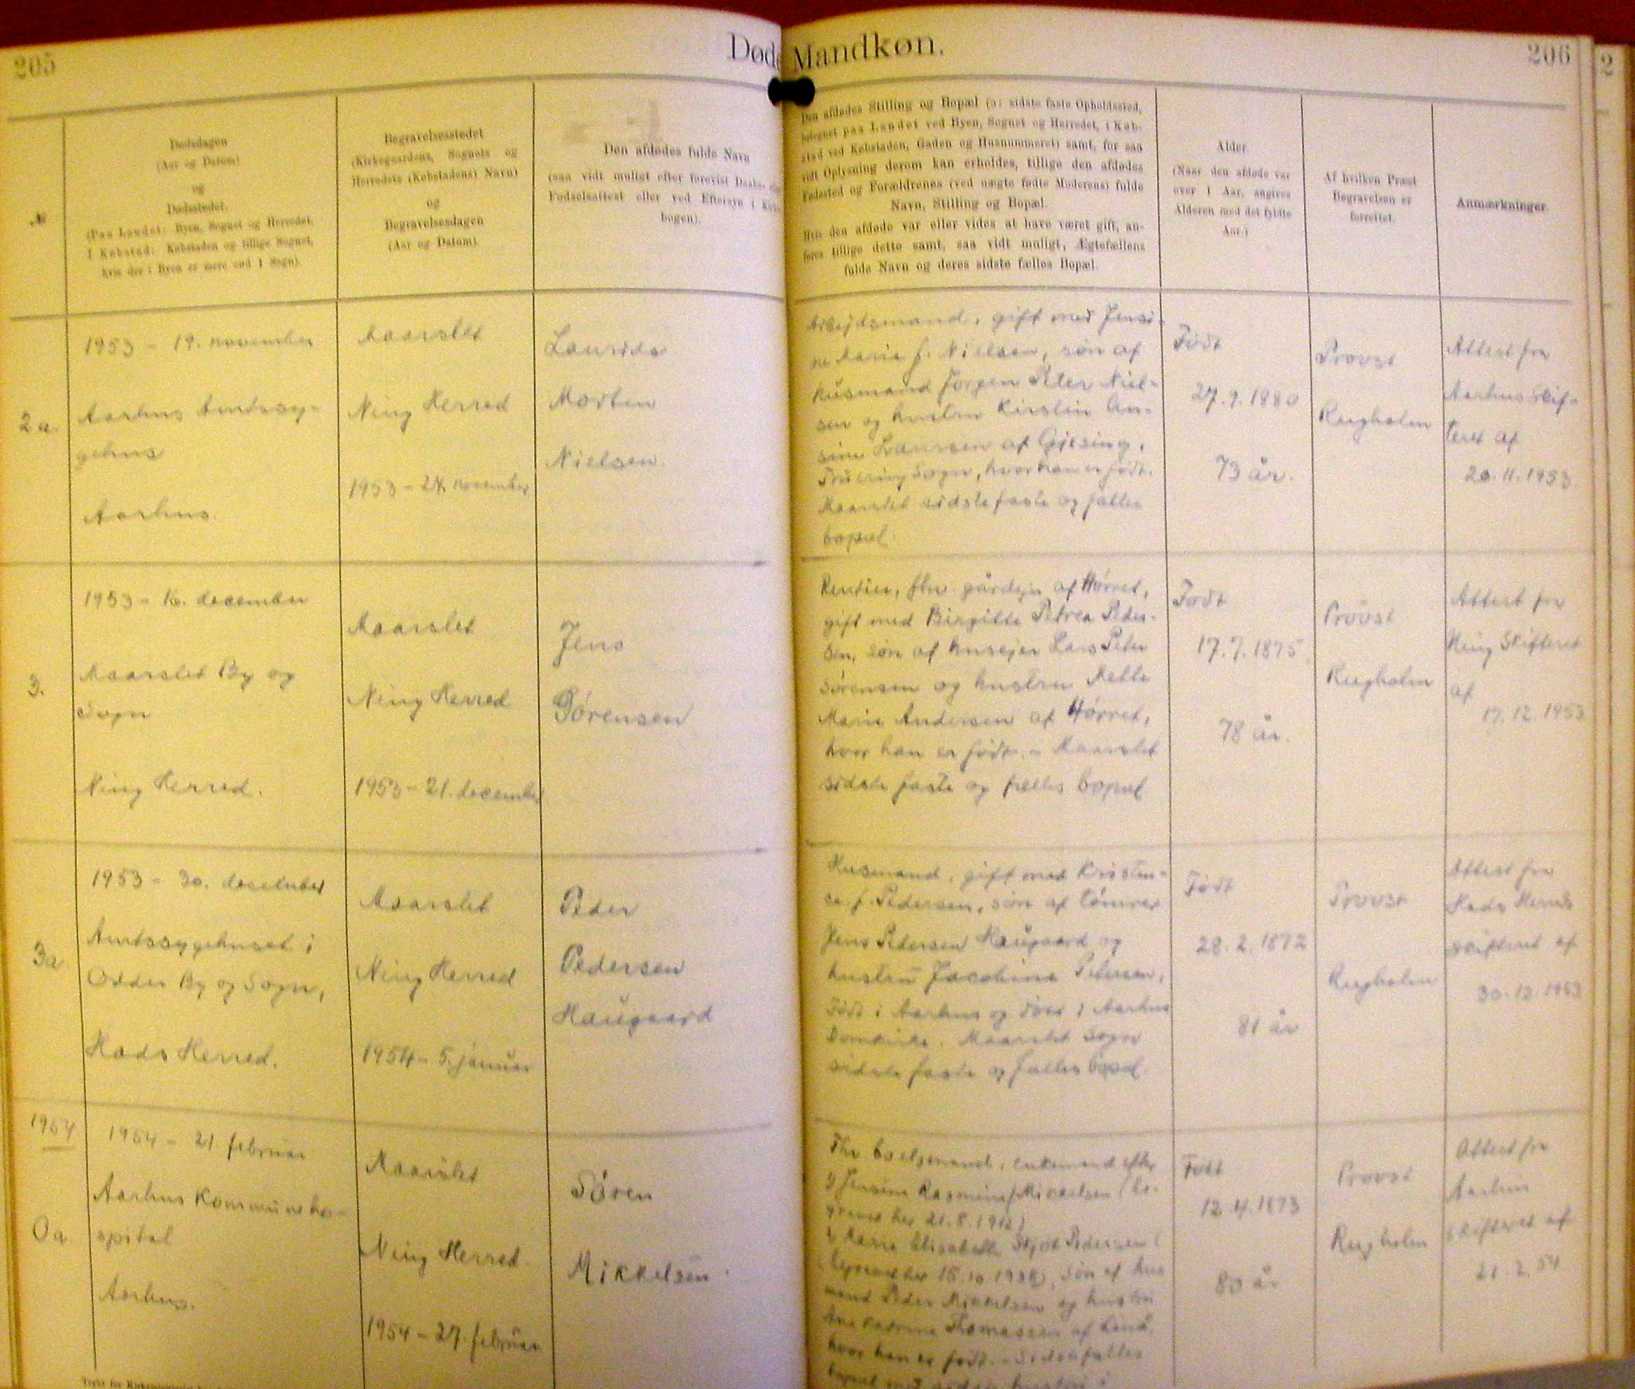 205
Døde Mandkøn.
206
2
№
Dødsdagen
(Aar og Datum)
og
Dødsstedet.
(Paa Landet: Byen, Sognet og Herredet,
I Købstad: Købstaden og tillige Sognet,
hvis der i Byen er mere end 1 Sogn).
Begravelsesstedet
(Kirkegaardens, Sognets og
Herredets (Købstadens) Navn)
og
Begravelsesdagen
(Aar og Datum)
Den afdødes fulde Navn
(saa vidt muligt efter forevist Daabs- eller
Fødselsattest eller ved Eftersyn i Kirke-
bogen).
Den afdødes Stilling og Bopæl (ɔ: sidste faste Opholdssted,
betegnet paa Landet ved Byen, Sognet og Herredet, i Køb-
stad ved Købstaden, Gaden og Husnummeret) samt, for saa
vidt Oplysning derom kan erholdes, tillige den afdødes
Fødested og Forældrenes (ved uægte fødte Moderens) fulde
Navn, Stilling og Bopæl.
Hvis den afdøde var eller vides at have været gift, an-
føres tillige dette samt, saa vidt muligt, Ægtefællens
fulde Navn og deres sidste fælles Bopæl.
Alder.
(Naar den afdøde var
over 1 Aar, angives
Alderen med det fyldte
Aar.)
Af hvilken Præst
Begravelsen er
forrettet.
Anmærkninger.
2a.
1953 - 19. november
Aarhus Amtssy-
gehus
Aarhus.
Maarslet
Ning Herred
1953 - 24. november
Laurids
Morten
Nielsen.
Arbejdsmand, gift med Jensi-
ne Marie f. Nielsen, søn af
husmand Jørgen Peter Niel-
sen og hustru Kirstin An-
sine Laursen af Gjesing,
Sogn, hvor han er født.
Maarslet sidste faste og fælles
bopæl.
Født
27.9.1880
73 år.
Provst
Rugholm
Attest fra
Aarhus Skif-
teret af
20.11.1953
3.
1953 - 16. december
Maarslet By og
Sogn
Ning Herred.
Maarslet
Ning Herred
1953 - 21. december
Jens
Sørensen
Rentier, fhv. gårdejer af Hørret,
gift med Birgitte Petrea Peder-
sen, søn af husejer Lars Peter
Sørensen og hustru Mette
Marie Andersen af Hørret,
hvor han er født. - Maarslet
sidste faste og fælles bopæl
Født
17.7.1875
78 år.
Provst
Rugholm
Attest fra
Ning Skifteret
af
17.12.1953
3a
1953 - 30. december
Amtssygehuset i
Odder By og Sogn,
Hads Herred.
Maarslet
Ning Herred
1954 - 5. januar
Peder
Pedersen
Haugaard
Husmand, gift med Kristen-
f. Pedersen, søn af tømrer
Jens Pedersen Haugaard og
hustru Jacobine Petersen,
Født i Aarhus og døbt i Aarhus
Domkirke. Maarslet Sogn
sidste faste og fælles bopæl.
Født
28.2.1872
81 år
Provst
Rugholm
Attest fra
Hads Herreds
skifteret af
30.12.1953
1954
0a
1954 - 21 februar
Aarhus Kommuneho-
spital
Aarhus.
Maarslet
Ning Herred
1954 - 27. februar
Søren
Mikkelsen.
Fhv. boelsmand, enkemand efter
Jensine Rasmine Mikkelsen (be-
gravet her 21.8.1912)
Marie Elisabeth Pedersen (
begravet her 15.10.1938), søn af hus
mand Peder Mikkelsen og hustru
Ane Katrine Thomassen af
hvor han er født. - Sidste fælles
bopæl med sidste hustru i
Født
12.4.1873
80 år
Provst
Rugholm
Attest fra
Aarhus
skifteret af
21.2.54